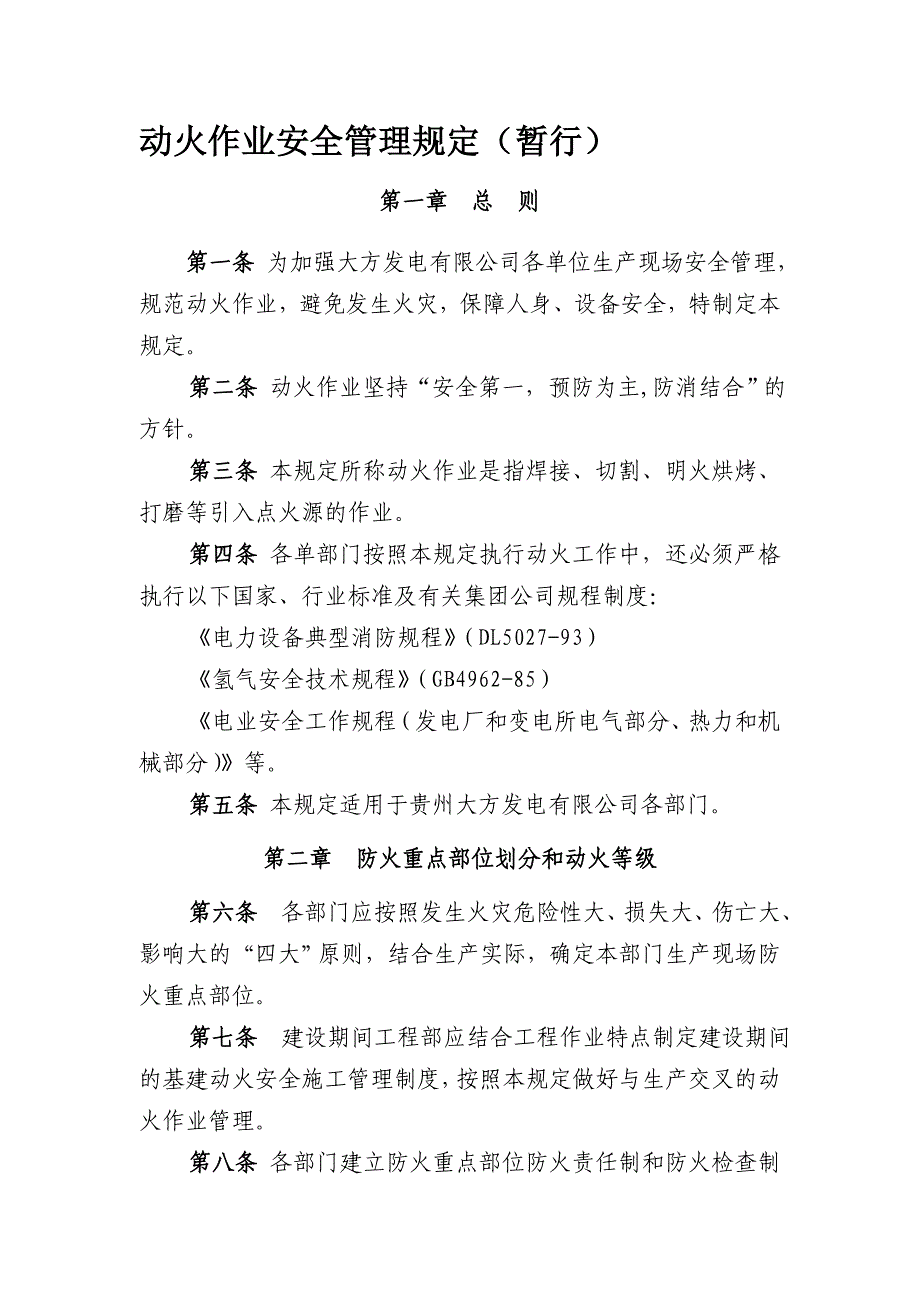 动火作业安全管理规定（暂行）
第一章　总　则
第一条 为加强大方发电有限公司各单位生产现场安全管理，
规范动火作业，避免发生火灾，保障人身、设备安全，特制定本
规定。
第二条 动火作业坚持“安全第一，预防为主,防消结合”的
方针。
第三条 本规定所称动火作业是指焊接、切割、明火烘烤、
打磨等引入点火源的作业。
第四条 各单部门按照本规定执行动火工作中，还必须严格
执行以下国家、行业标准及有关集团公司规程制度：
《电力设备典型消防规程》（DL5027-93）
《氢气安全技术规程》（GB4962-85）
《电业安全工作规程（发电厂和变电所电气部分、热力和机
械部分）》等。
第五条 本规定适用于贵州大方发电有限公司各部门。
第二章　防火重点部位划分和动火等级
第六条　各部门应按照发生火灾危险性大、损失大、伤亡大、
影响大的“四大”原则，结合生产实际，确定本部门生产现场防
火重点部位。
第七条　建设期间工程部应结合工程作业特点制定建设期间
的基建动火安全施工管理制度，按照本规定做好与生产交叉的动
火作业管理。
第八条 各部门建立防火重点部位防火责任制和防火检查制